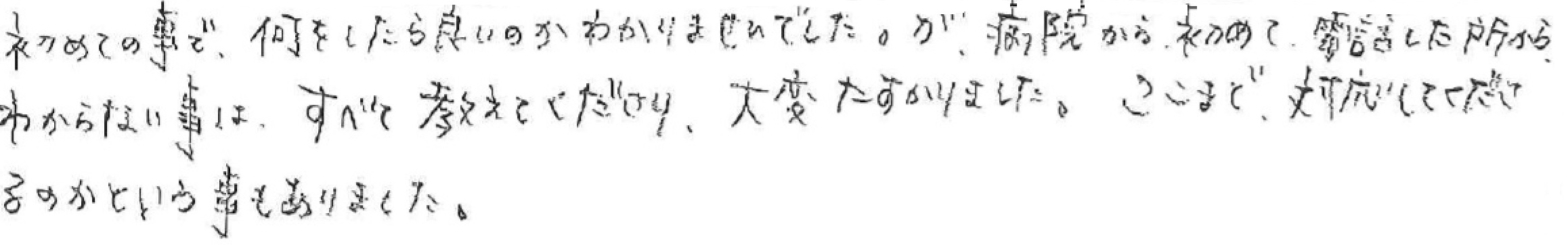 初めての事で、何をしたら良いのかわかりませんでした。が、病院から、初めて、電話した所から、
わからない事は、すべて教えてくださり、大変たすかりました。ここまで、対応してくださ
るのかという事もありました。